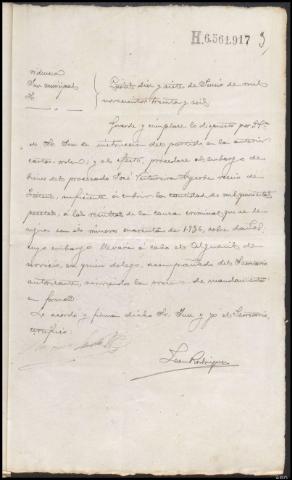 H.6.561.917
Juez municipal
diez y siete de Junio de mil
novecientos treinta y seis
Guarde y cumplase lo dispuesto por el
Sr. Juez de instrucción del partido en la anterior
carta orden; y al efecto, procedase al embargo de
bienes del procesado José vecino de
suficiente a cubrir la cantidad de mil quinientas
pesetas, a las resultas de la causa criminal que se le
sigue con el número cuarenta de 1936, sobre daños,
cuyo embargo llevará a cabo el Alguacil de
servicio, en quien delego, acompañado del Secretario
autorizante, sirviendo la presente de mandamiento
en forma.
Lo acordó y firma dicho Sr. Juez y yo el Secretario,
certifico.
Rodriguez